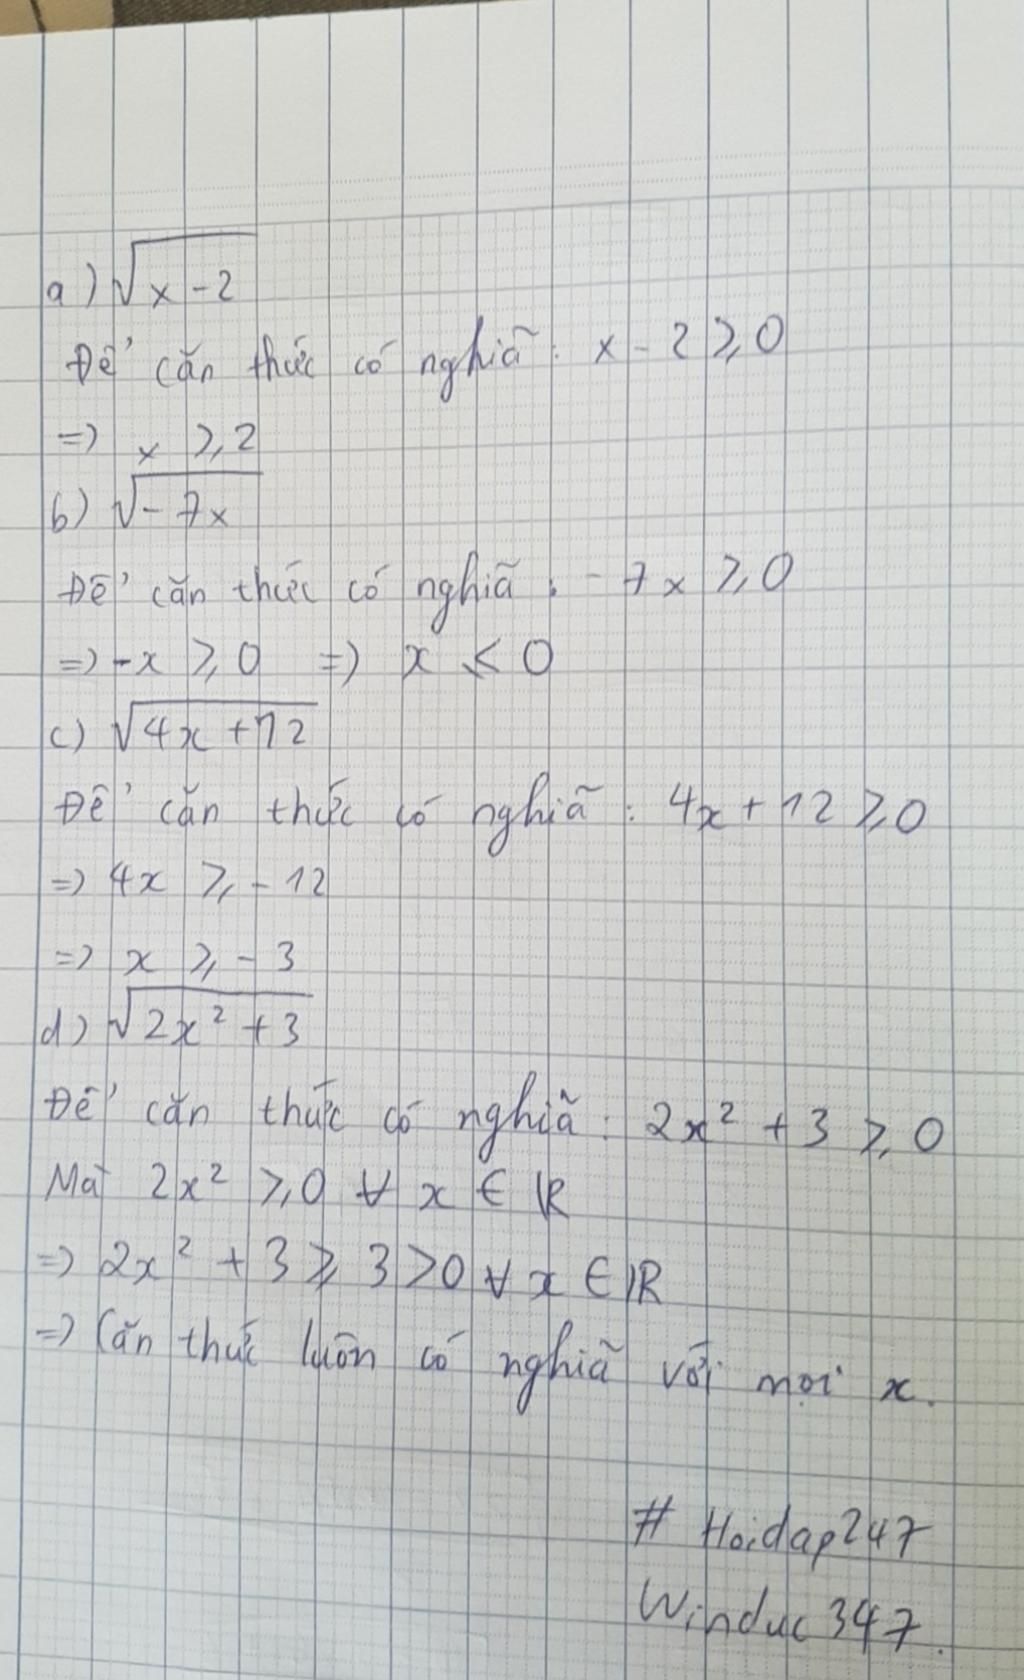 a) √x - 2
Để căn thức có nghiã : x - 2 ⩾ 0
=> x ⩾ 2
b) √- 7x
Để căn thức có nghiã : - 7x ⩾ 0
=> -x ⩾ 0 => x ⩽ 0
c) √4x + 12
Để căn thức có nghiã : 4x + 12 ⩾ 0
=> 4x ⩾ - 12
=> x ⩾ - 3
d) √2x² + 3
Để căn thức có nghiã : 2x² + 3 ⩾ 0
Mà 2x² ⩾ 0 ∀ x ∈ ℝ
=> 2x² + 3 ⩾ 3 > 0 ∀ x ∈ ℝ
=> Căn thức luôn có nghiã với mọi x.
# Hoidap247
Winduc347.